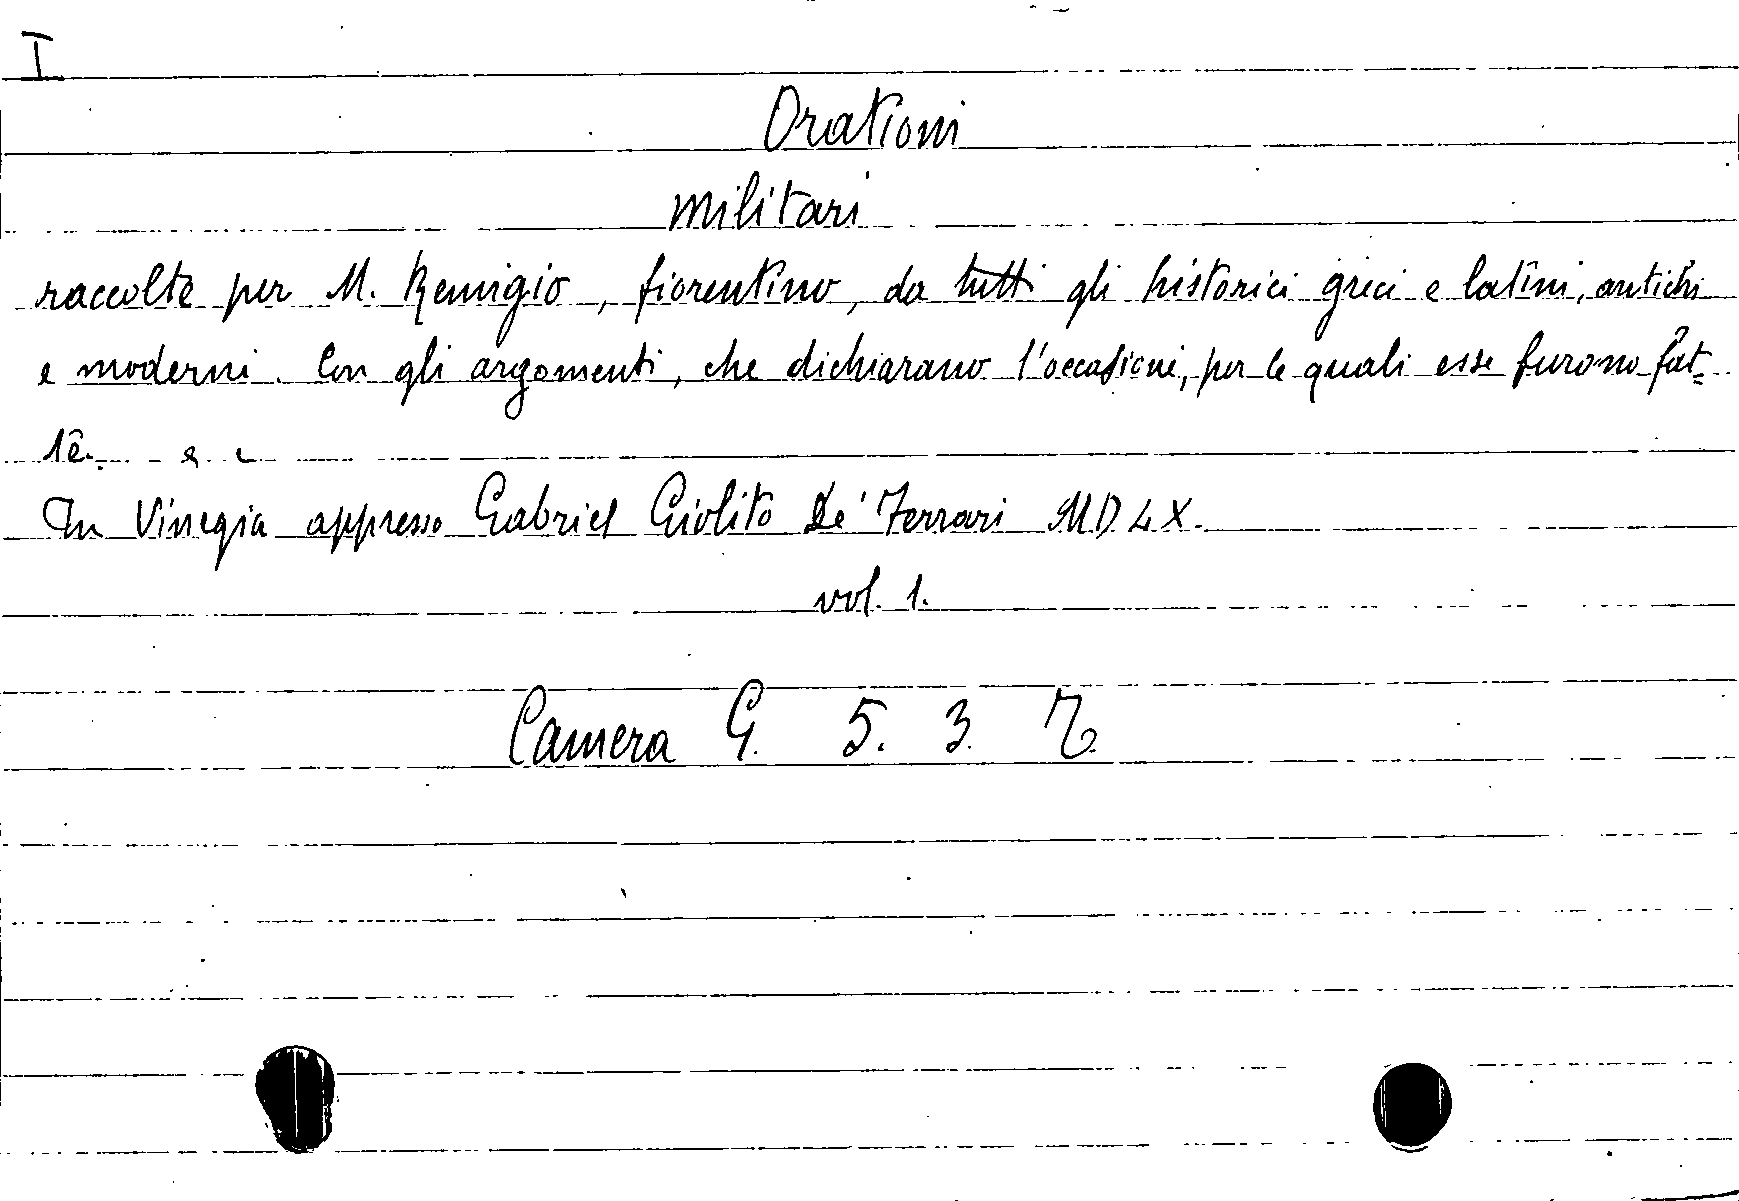 I
Orationi
militari
raccolte per M. Remigio, fiorentino, da tutti gli historici greci e latini, antichi
e moderni. Con gli argomenti, che dichiarano l'occasioni, per le quali esse furono fat=
te.
In Vinegia appresso Gabriel Giolito De' Ferrari MDLX.
vol. 1.
Camera G. 5. 3.